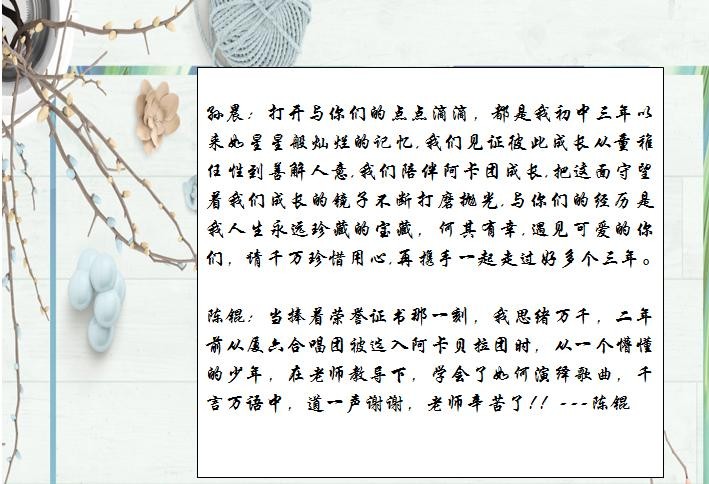 孙晨：打开与你们的点点滴滴，都是我初中三年以
来如星星般灿烂的记忆,我们见证彼此成长从童稚
任性到善解人意,我们陪伴阿卡团成长,把这面守望
着我们成长的镜子不断打磨抛光,与你们的经历是
我人生永远珍藏的宝藏，何其有幸,遇见可爱的你
们，请千万珍惜用心,再携手一起走过好多个三年。
陈锟：当捧着荣誉证书那一刻，我思绪万千，二年
前从厦六合唱团被选入阿卡贝拉团时，从一个懵懂
的少年，在老师教导下，学会了如何演绎歌曲，千
言万语中，道一声谢谢，老师辛苦了!！---陈锟